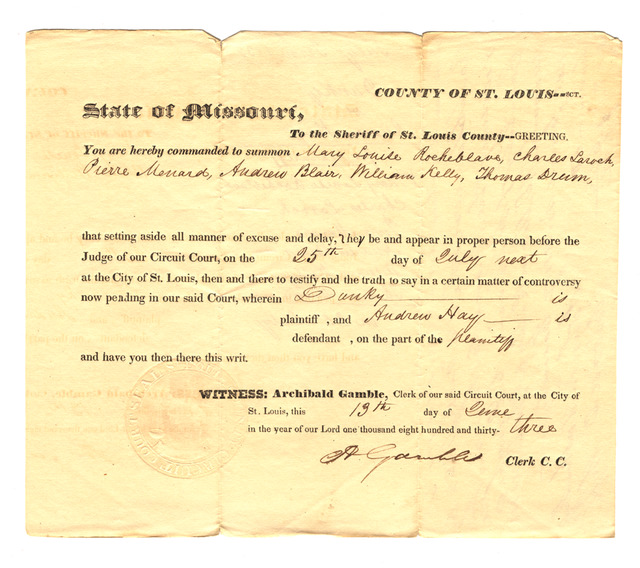 COUNTY OF ST. LOUIS--SCT.
State of Missouri,
To the Sheriff of St. Louis County--GREETING.
You are hereby commanded to summon Mary Louise Rocheblave, Charles Laroch,
Pierre Menard, Andrew Blair, William Kelly, Thomas Drum,
that setting aside all manner of excuse and delay, they be and appear in proper person before the
Judge of our Circuit Court, on the 25th day of July next
at the City of St. Louis, then and there to testify and the truth to say in a certain matter of controversy
now pending in our said Court, wherein Dunky is
plaintiff , and Andrew Hay is
defendant , on the part of the plaintiff
and have you then there this writ.
WITNESS: Archibald Gamble, Clerk of our said Circuit Court, at the City of
St. Louis, this 19th day of June
in the year of our Lord one thousand eight hundred and thirty-three
A Gamble Clerk C. C.